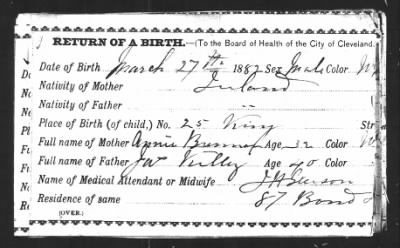 RETURN OF A BIRTH.—(To the Board of Health of the City of Cleveland.
Date of Birth March 27th 1882 Sex Male Color
Nativity of Mother Ireland
Nativity of Father "
Place of Birth (of child.) No. 25 King Str
Full name of Mother Annie Age 32 Color
Full name of Father Jas Age 40 Color
Name of Medical Attendant or Midwife
Residence of same 87 Bond
(OVER.)